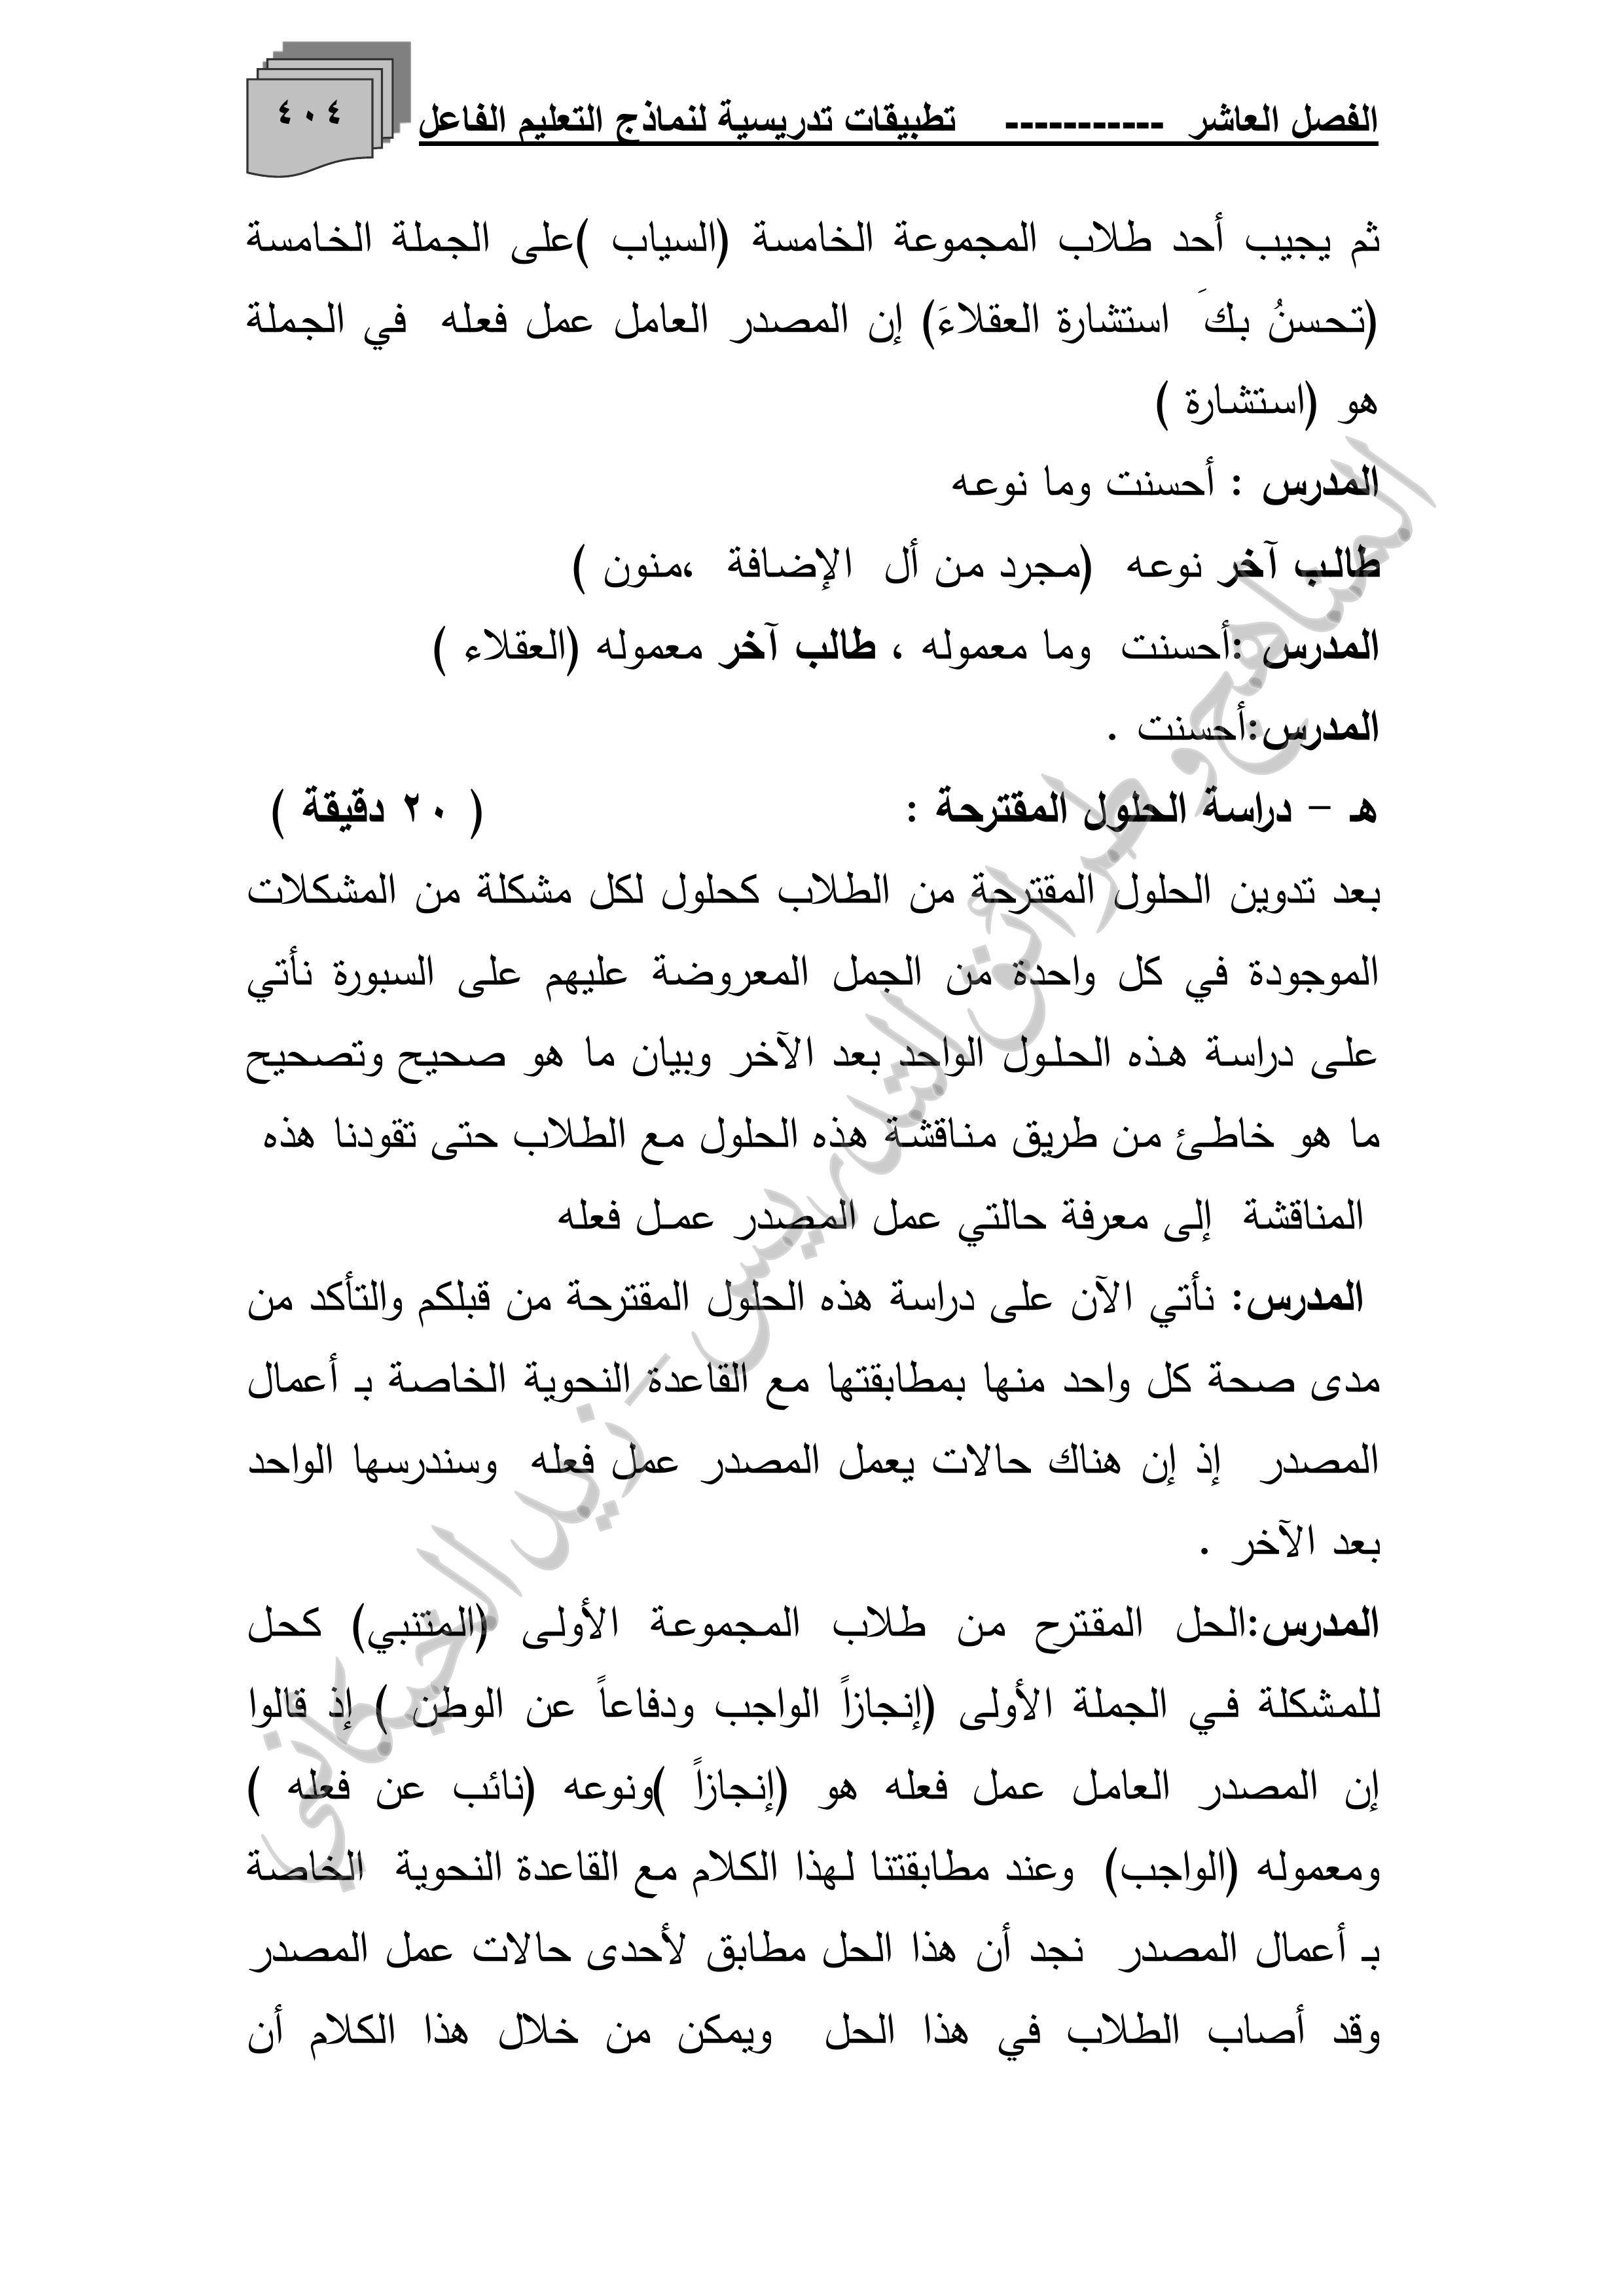 الفصل العاشر ----------- تطبيقات تدريسية لنماذج التعليم الفاعل
٤٠٤
ثم يجيب أحد طلاب المجموعة الخامسة (السياب )على الجملة الخامسة
(تحسنُ بكَ استشارة العقلاءَ) إن المصدر العامل عمل فعله في الجملة
هو (استشارة )
المدرس : أحسنت وما نوعه
طالب آخر نوعه (مجرد من أل الإضافة ،منون )
المدرس :أحسنت وما معموله ، طالب آخر معموله (العقلاء )
المدرس:أحسنت .
هـ – دراسة الحلول المقترحة : ( ٢٠ دقيقة )
بعد تدوين الحلول المقترحة من الطلاب كحلول لكل مشكلة من المشكلات
الموجودة في كل واحدة من الجمل المعروضة عليهم على السبورة نأتي
على دراسة هذه الحلول الواحد بعد الآخر وبيان ما هو صحيح وتصحيح
ما هو خاطئ من طريق مناقشة هذه الحلول مع الطلاب حتى تقودنا هذه
المناقشة إلى معرفة حالتي عمل المصدر عمل فعله
المدرس: نأتي الآن على دراسة هذه الحلول المقترحة من قبلكم والتأكد من
مدى صحة كل واحد منها بمطابقتها مع القاعدة النحوية الخاصة بـ أعمال
المصدر إذ إن هناك حالات يعمل المصدر عمل فعله وسندرسها الواحد
بعد الآخر .
المدرس:الحل المقترح من طلاب المجموعة الأولى (المتنبي) كحل
للمشكلة في الجملة الأولى (إنجازاً الواجب ودفاعاً عن الوطن ) إذ قالوا
إن المصدر العامل عمل فعله هو (إنجازاً )ونوعه (نائب عن فعله )
ومعموله (الواجب) وعند مطابقتنا لهذا الكلام مع القاعدة النحوية الخاصة
بـ أعمال المصدر نجد أن هذا الحل مطابق لأحدى حالات عمل المصدر
وقد أصاب الطلاب في هذا الحل ويمكن من خلال هذا الكلام أن
المناهج وطرائق التدريس - زيد الخيكاني